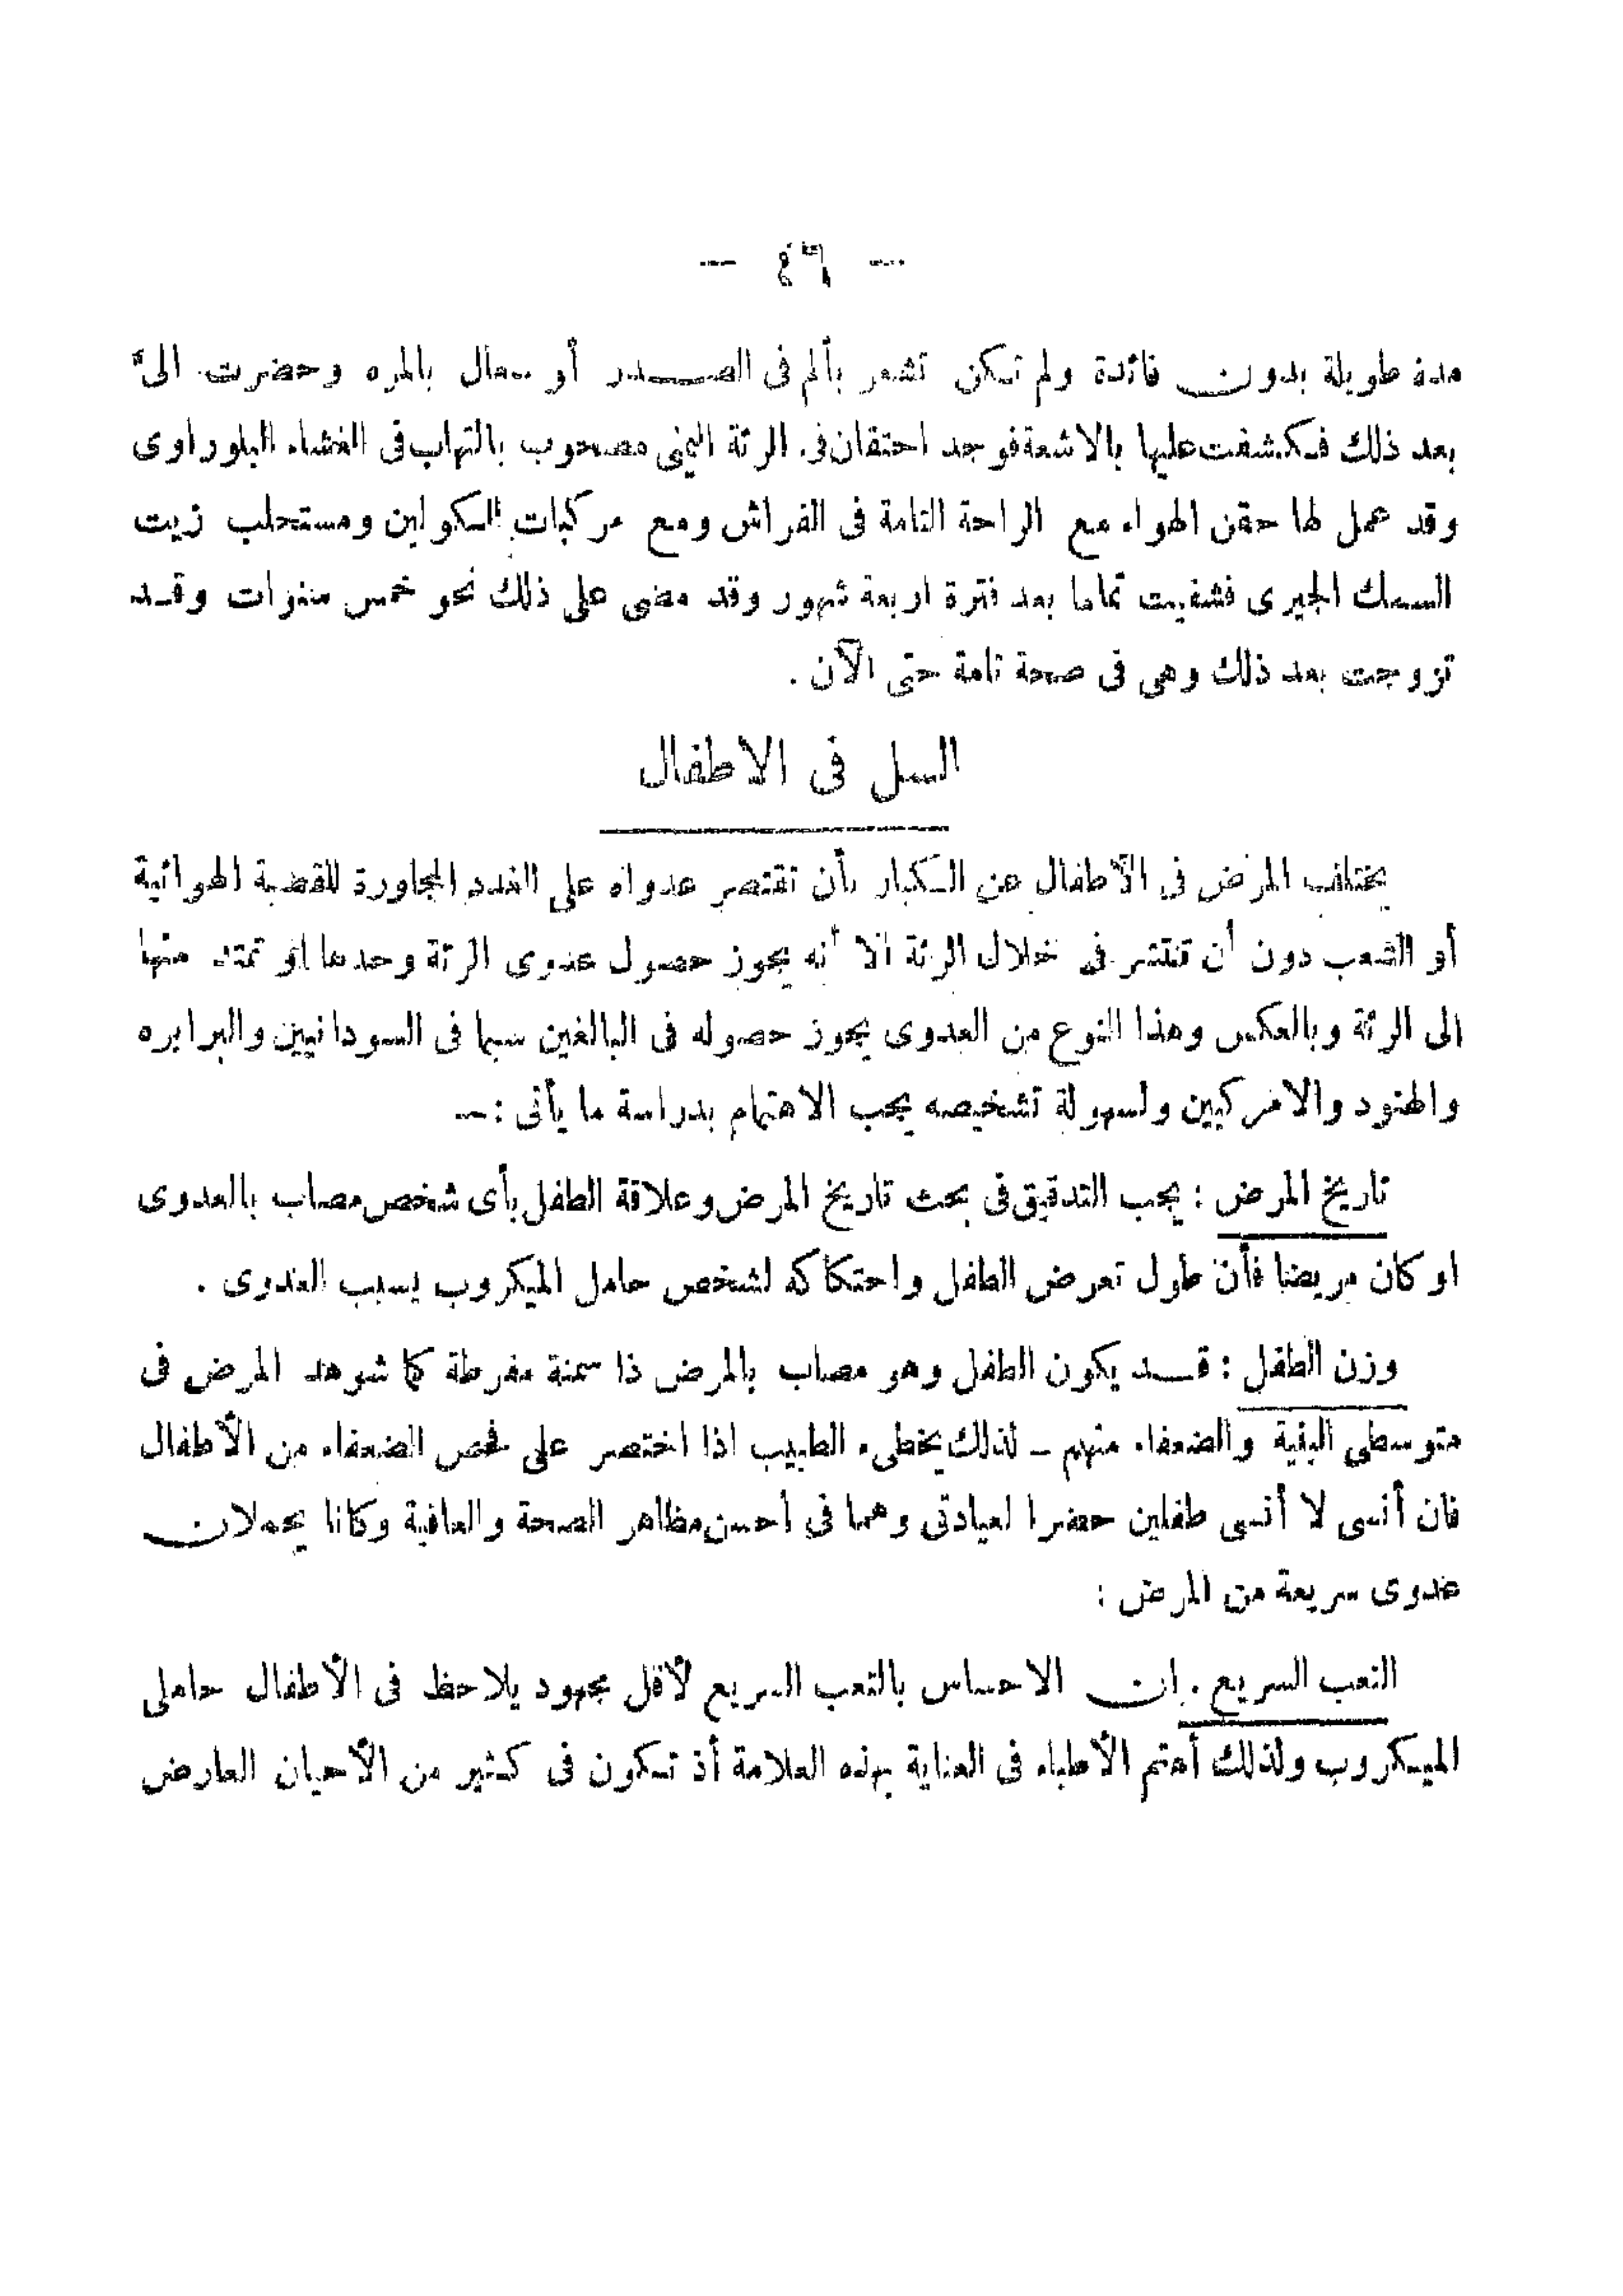 — ٤٦ —
مدة طويلة بدون فائدة ولم تكن تشعر بألم فى الصدر أو سعال بالمره وحضرت الىّ
بعد ذلك فكشفت عليها بالاشعة فوجد احتقان فى الرئة اليمنى مصحوب بالتهاب فى الغشاء البلوراوى
وقد عمل لها حقن الهواء مع الراحة التامة فى الفراش ومع مركبات السكولين ومستحلب زيت
السمك الجيرى فشفيت تماما بعد فترة اربعة شهور وقد مضى على ذلك نحو خمس سنوات وقد
تزوجت بعد ذلك وهى فى صحة تامة حتى الآن .
السل فى الاطفال
يختلف المرض فى الأطفال عن الكبار بأن تقتصر عدواه على الغدد المجاورة للقصبة الهوائية
أو الشعب دون أن تنتشر فى خلال الرئة الا أنه يجوز حصول عدوى الرئة وحدها أو تمتد منها
الى الرئة وبالعكس وهذا النوع من العدوى يجوز حصوله فى البالغين سيما فى السودانيين والبرابره
والهنود والامركيين ولسهولة تشخيصه يجب الاهتمام بدراسة ما يأتى :—
تاريخ المرض : يجب التدقيق فى بحث تاريخ المرض وعلاقة الطفل بأى شخص مصاب بالعدوى
او كان مريضا فأن طول تعرض الطفل واحتكاكه لشخص حامل الميكروب يسبب العدوى .
وزن الطفل : قد يكون الطفل وهو مصاب بالمرض ذا سمنة مفرطة كما شوهد المرض فى
متوسطى البنية والضعفاء منهم — لذلك يخطىء الطبيب اذا اختصر على فحص الضعفاء من الأطفال
فان أنسى لا أنسى طفلين حضرا لعيادتى وهما فى أحسن مظاهر الصحة والعافية وكانا يحملان
عدوى سريعة من المرض :
التعب السريع . ان الاحساس بالتعب السريع لأقل مجهود يلاحظ فى الأطفال حاملى
الميكروب ولذلك أهتم الأطباء فى العناية بهذه العلامة أذ تكون فى كثير من الأحيان العارض